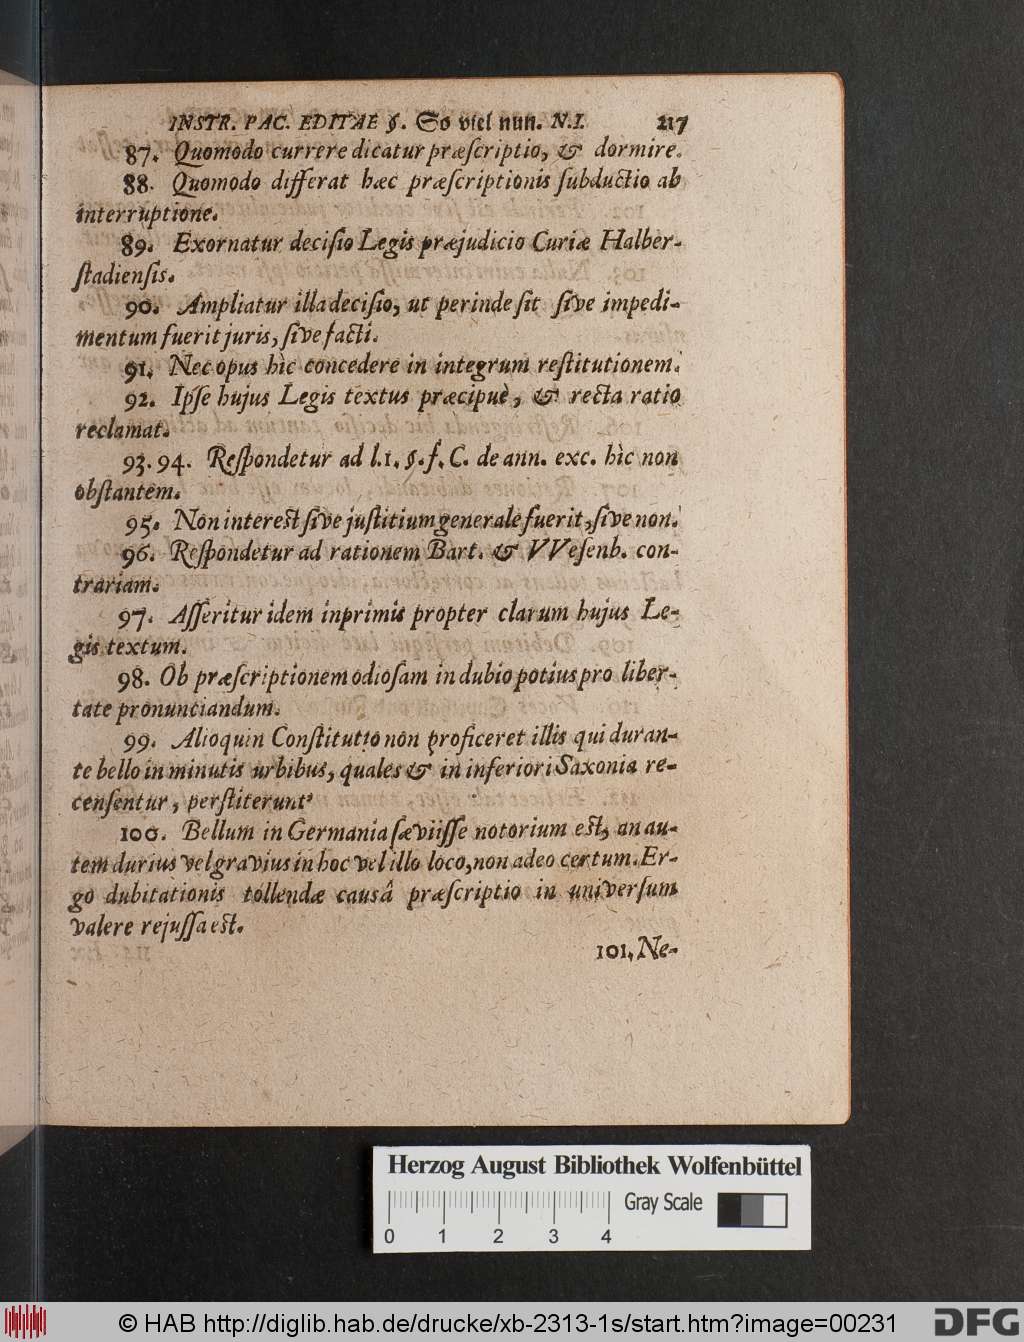 INSTR. PAC. EDITAE §. So viel nun. N.I. 217
87. Quomodo currere dicatur præſcriptio, & dormire.
88. Quomodo differat hæc præſcriptionis ſubductio ab
interruptione.
89. Exornatur deciſio Legis præjudicio Curiæ Halber-
ſtadienſis.
90. Ampliatur illa deciſio, ut perinde ſit ſive impedi-
mentum fuerit juris, ſive facti.
91. Nec opus hìc concedere in integrum reſtitutionem.
92. Ipſe hujus Legis textus præcipuè, & recta ratio
reclamat.
93. 94. Reſpondetur ad l.1. §. f. C. de ann. exc. hìc non
obſtantem.
95. Non intereſt ſive juſtitium generale fuerit, ſive non.
96. Reſpondetur ad rationem Bart. & VVeſenb. con-
trariam.
97. Aſſeritur idem inprimis propter clarum hujus Le-
gis textum.
98. Ob præſcriptionem odioſam in dubio potius pro liber-
tate pronunciandum.
99. Alioquin Conſtitutio non proficeret illis qui duran-
te bello in minutis urbibus, quales & in inferiori Saxonia re-
cenſentur, perſtiterunt
100. Bellum in Germania ſæviiſſe notorium eſt, an au-
tem durius vel gravius in hoc vel illo loco, non adeo certum. Er-
go dubitationis tollendæ causâ præſcriptio in univerſum
valere rejuſſa eſt.
101. Ne-
Herzog August Bibliothek Wolfenbüttel
Gray Scale
0 1 2 3 4
© HAB http://diglib.hab.de/drucke/xb-2313-1s/start.htm?image=00231
DFG